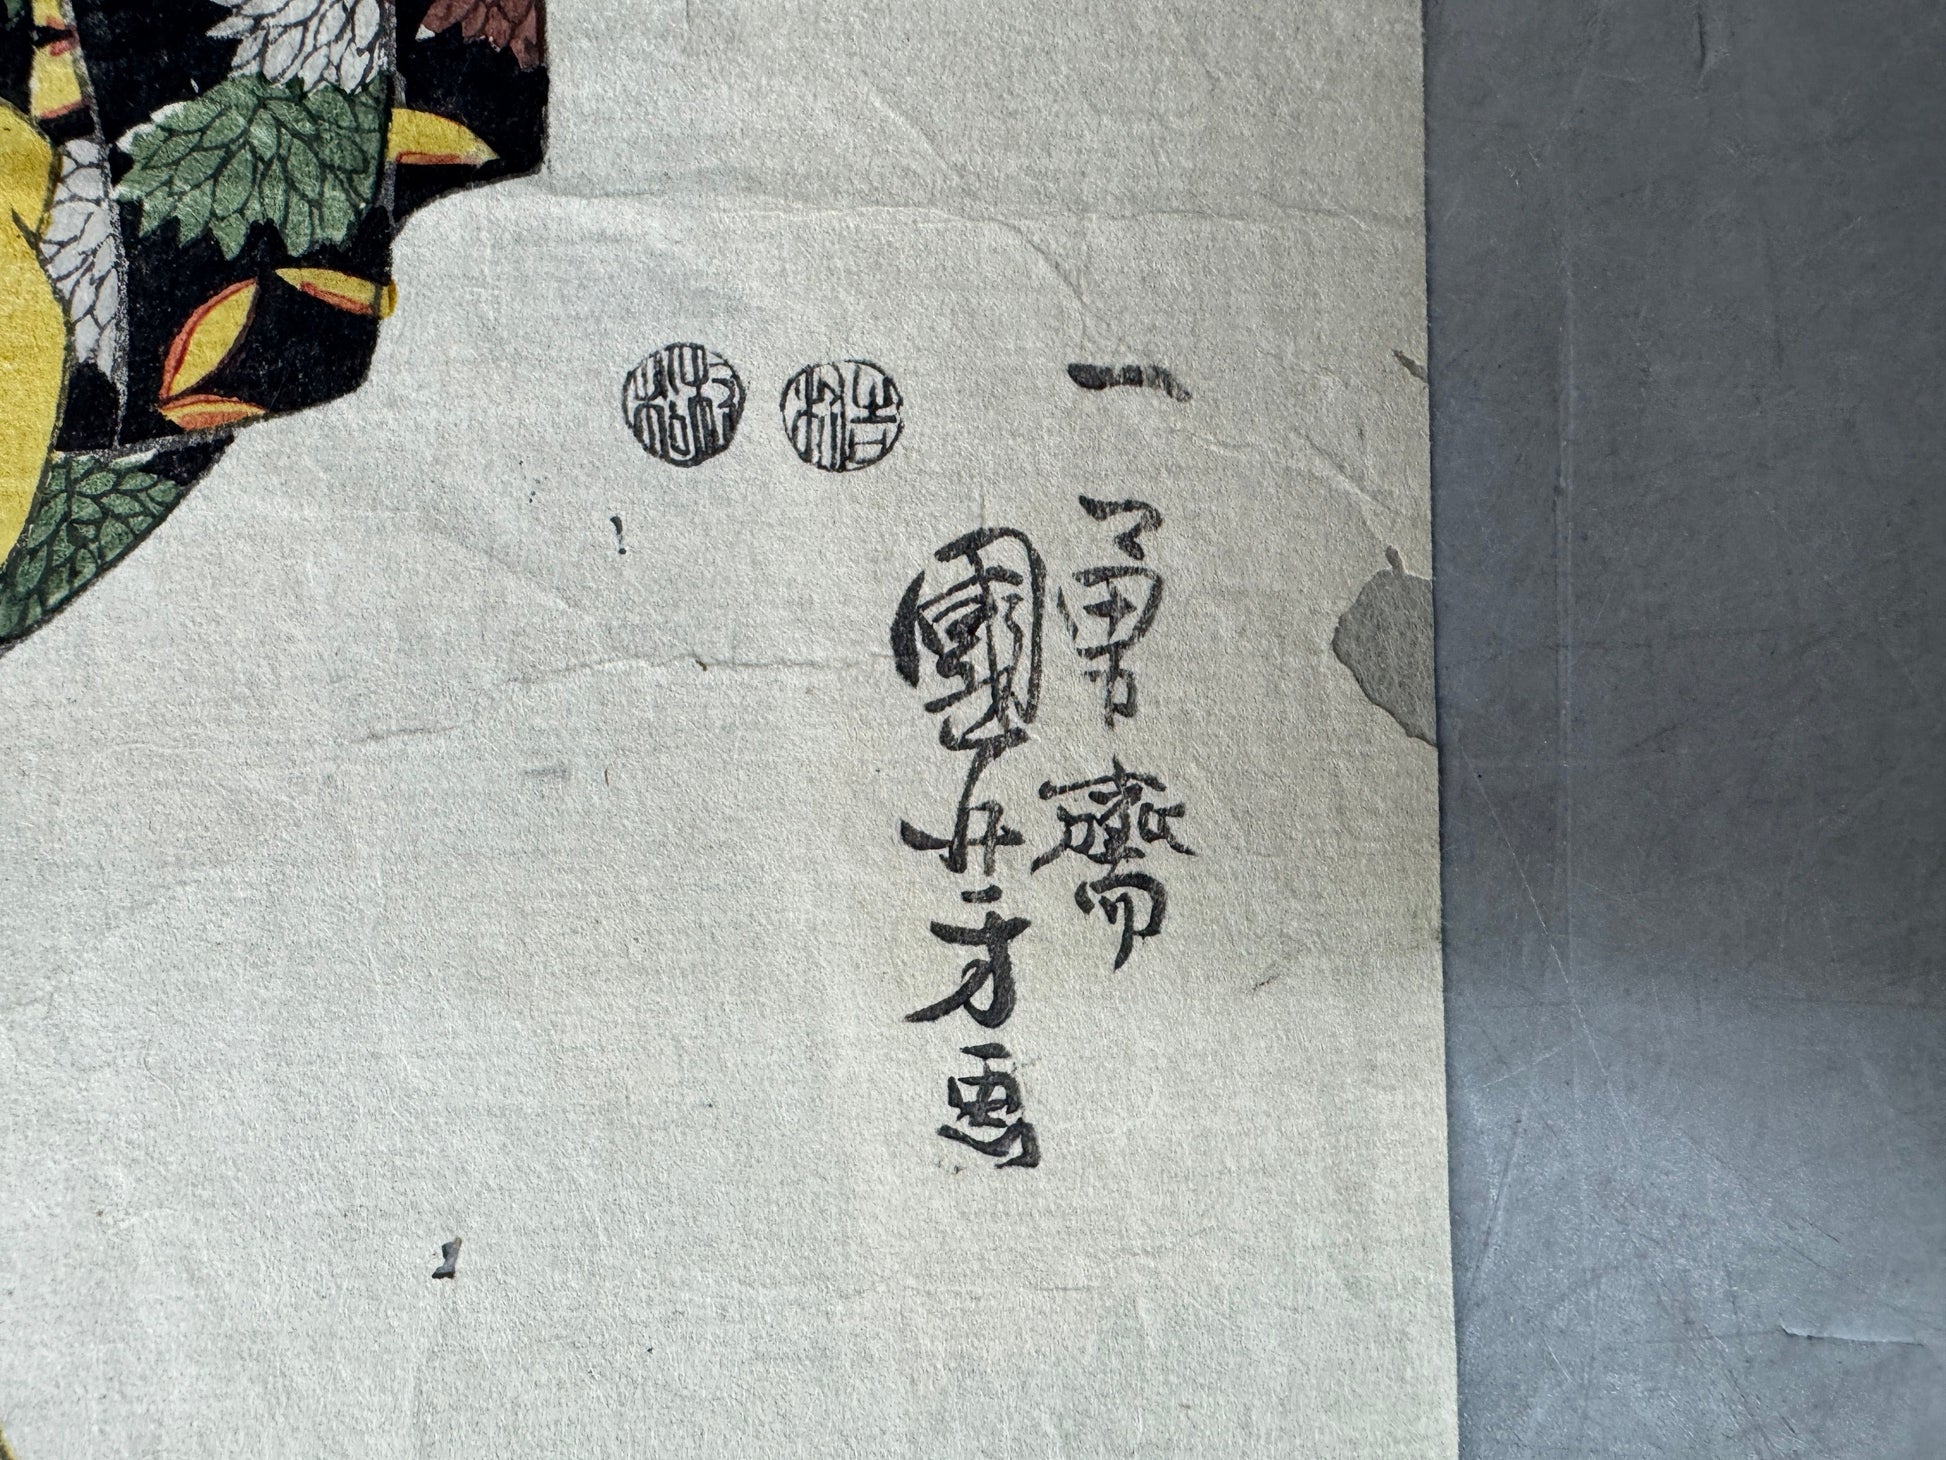 一勇齋
國芳画
吉村
村松